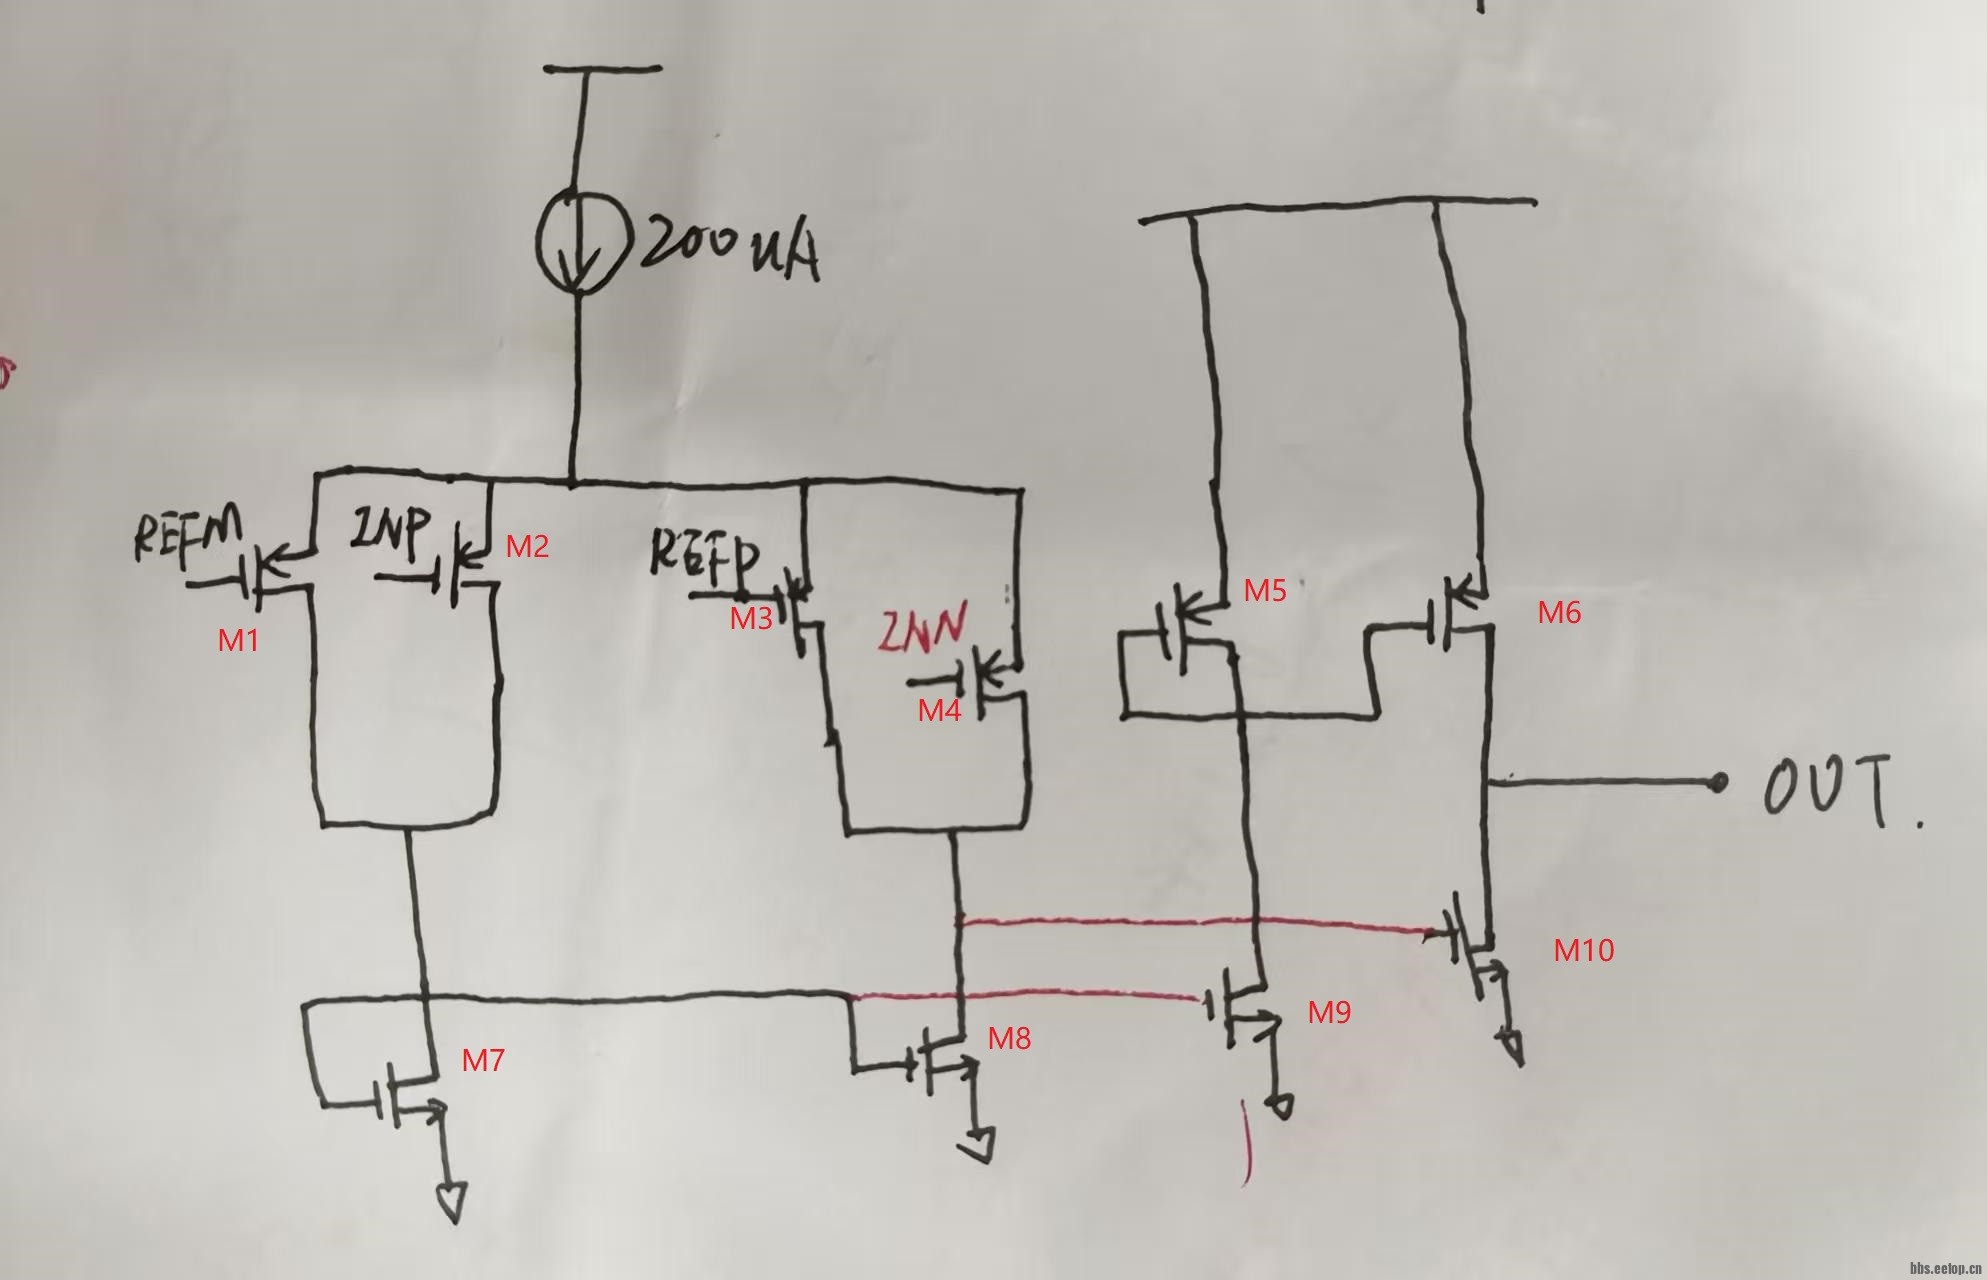 200uA
REFM
INP
M2
REFP
M1
M3
INN
M4
M5
M6
OUT.
M10
M9
M8
M7
bbs.eetop.cn